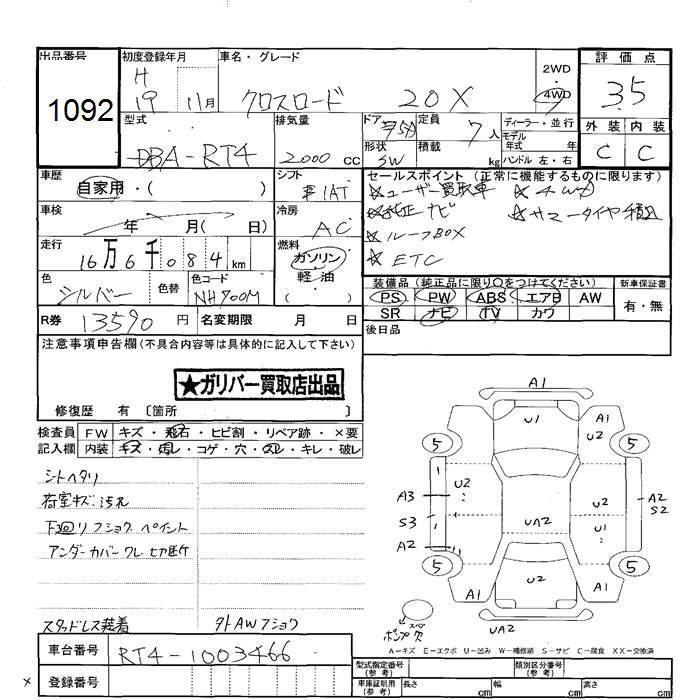 出品番号
1092
初度登録年月
H
19 11月
車名・グレード
クロスロード 20X
2WD
4WD
評価点
35
外装 内装
C C
型式
DBA-RT4
排気量
2000 cc
ドア
形状
SW
定員
7人
積載
kg
ディーラー・並行
モデル
年式 年
ハンドル 左・右
車歴
自家用・( )
シフト
IAT
車検
年 月( 日)
冷房
AC
走行
16万6千084km
燃料
ガソリン
軽油
( )
色
シルバー
色替
色コード
NH700M
セールスポイント (正常に機能するものに限ります)
☆ユーザー買取車 ☆4WD
☆純正ナビ ☆サマータイヤ積込
☆ルーフBOX
☆ETC
装備品(純正品に限り○をつけてください)
PS PW ABS エアB AW
SR ナビ TV カワ
新車保証書
有・無
R券 13590円
名変期限 月 日
後日品
注意事項申告欄(不具合内容等は具体的に記入して下さい)
★ガリバー買取店出品
修復歴 有 〔箇所 〕
検査員
記入欄
FW キズ・飛石・ヒビ割・リペア跡・×要
内装 キズ・汚レ・コゲ・穴・スレ・キレ・破レ
シートヘタリ
荷室キズ汚れ
下廻リフショクペイント
アンダーカバーワレ
スタッドレス装着
外AWフショク
A1
U1
A1
U2
5
5
A3
U2
U2
A2
S2
S3
U1
A2
UA2
5
5
A1
U2
A1
UA2
スペア
A-キズ E-エクボ U-凹み W-補修跡 S-サビ C-腐食 XX-交換済
車台番号
RT4-1003466
×
登録番号
型式指定番号
(参考)
類別区分番号
(参考)
車庫証明用
(参考)
長さ cm
幅 cm
高さ cm